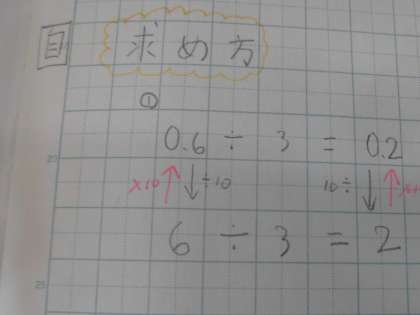 自 求め方
①
0.6 ÷ 3 = 0.2
×10 ÷10 10÷
6 ÷ 3 = 2